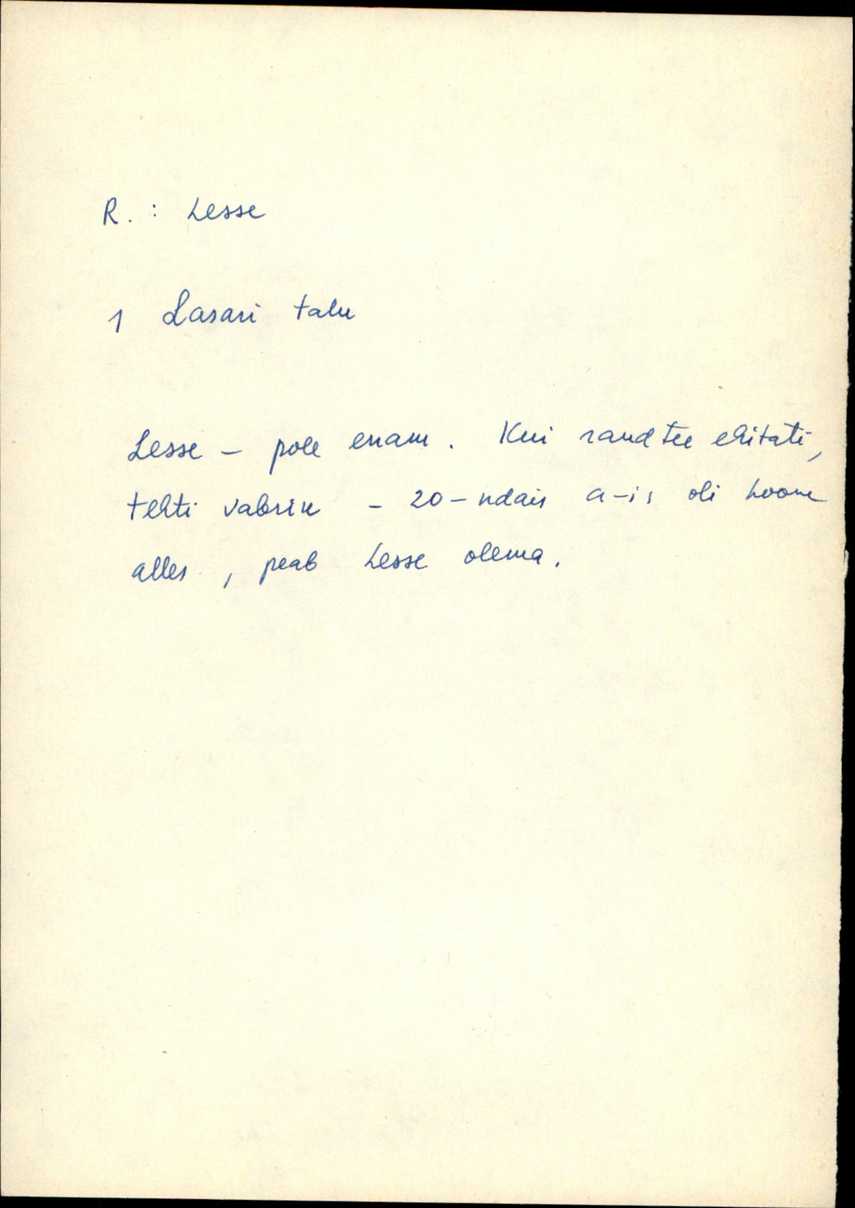 R. : Lesse
1 Lasari talu
Lesse – pole enam. Kui raudtee ehitati,
tehti vabrik – 20-ndais a-is oli hoone
alles, peab Lesse olema.